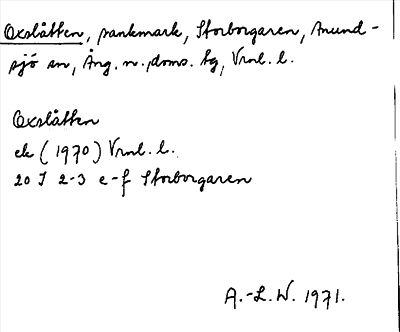 Oxslåtten, sankmark, Storborgaren, Anund-
sjö sn, Ång. n., doms. bg, Vrnl. l.
Oxslåtten
ek (1970) Vrnl. l.
20 I 2-3 e-f Storborgaren
A.-L. W. 1971.